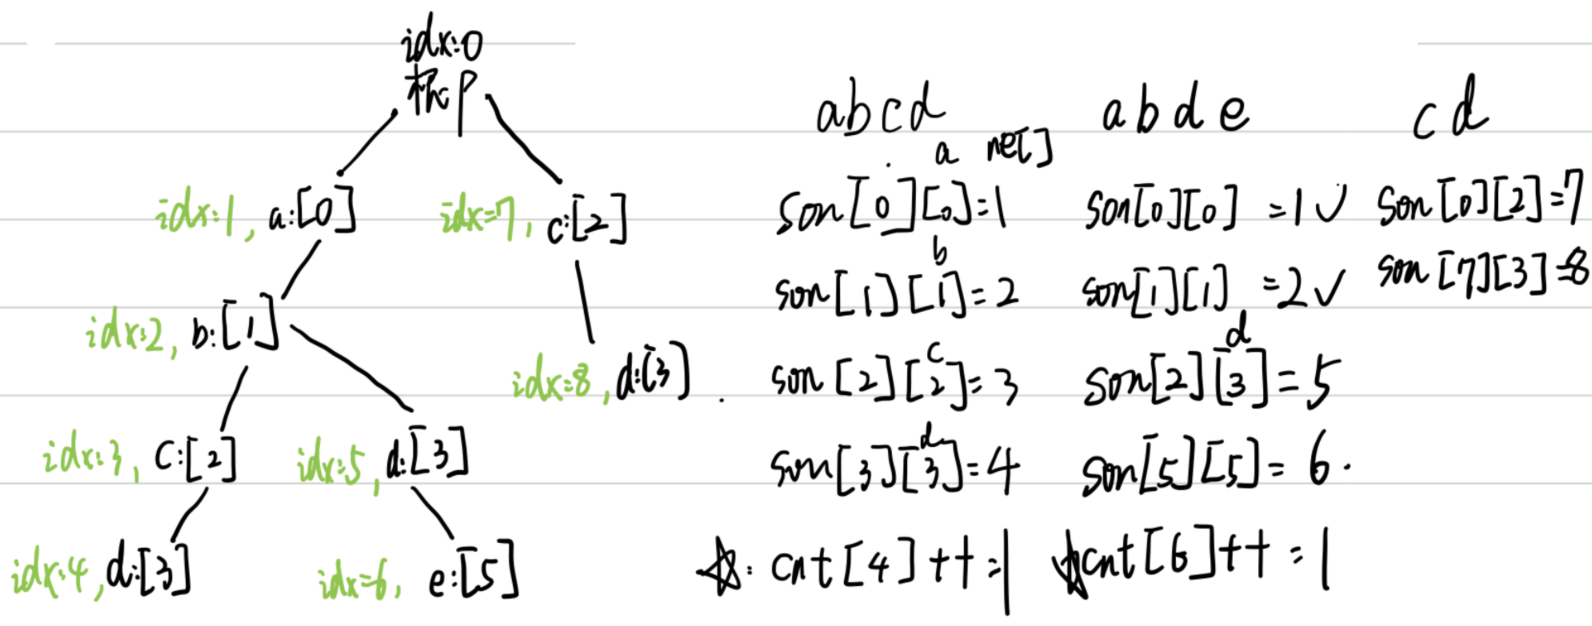 idx:0
根 p
idx:1, a:[0]
idx=7, c:[2]
idx:2, b:[1]
idx=8, d:[3]
idx:3, c:[2]
idx:5, d:[3]
idx:4, d:[3]
idx=6, e:[5]
abcd
a ne[]
son[0][0]=1
b
son[1][1]=2
c
son[2][2]=3
d
son[3][3]=4
☆: cnt[4]++=1
abde
son[0][0] =1✓
son[1][1] =2✓
d
son[2][3]=5
son[5][5]=6.
☆cnt[6]++=1
cd
son[0][2]=7
son[7][3]=8